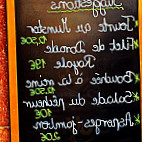 Suggestions
* Tourte au Munster
10,50€
* Filet de Dorade
Royale
19€
* Bouchée à la reine
9,50€
* Salade du pêcheur
10€
* Asperges-jambon
20€